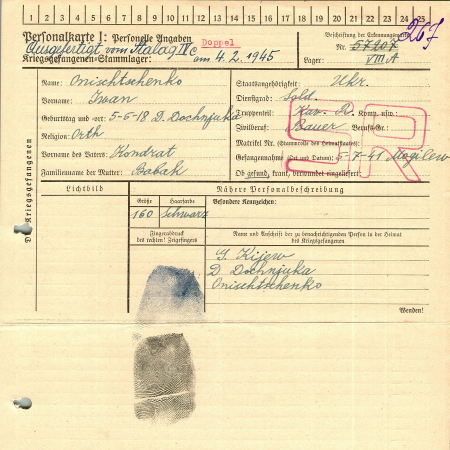 1 2 3 4 5 6 7 8 9 10 11 12 13 14 15 16 17 18 19 20 21 22 23 24 25
267
Personalkarte I: Personelle Angaben
Beschriftung der Erkennungsmarke
Ausgefertigt vom Stalag IV C Doppel
Nr. 57207
Kriegsgefangenen-Stammlager: am 4.2.1945
Lager: VIII A
Name: Onischtschenko
Staatsangehörigkeit: Ukr.
Vorname: Iwan
Dienstgrad: Sold.
Geburtstag und -ort: 5-6-18 D. Dochnjuka
Truppenteil: Kav. R. Komp. usw.:
Religion: Orth
Zivilberuf: Bauer Berufs-Gr.:
Matrikel Nr. (Stammrolle des Heimatstaates):
Vorname des Vaters: Kondrat
Gefangennahme (Ort und Datum): 5-7-41 Mogilew
Familienname der Mutter: Babak
Ob gesund, krank, verwundet eingeliefert:
SR
Des Kriegsgefangenen
Lichtbild
Nähere Personalbeschreibung
Größe Haarfarbe Besondere Kennzeichen:
160 Schwarz
Fingerabdruck
des rechten! Zeigefingers
Name und Anschrift der zu benachrichtigenden Person in der Heimat
des Kriegsgefangenen
G. Kijew
D. Dochnjuka
Onischtschenko
Wenden!